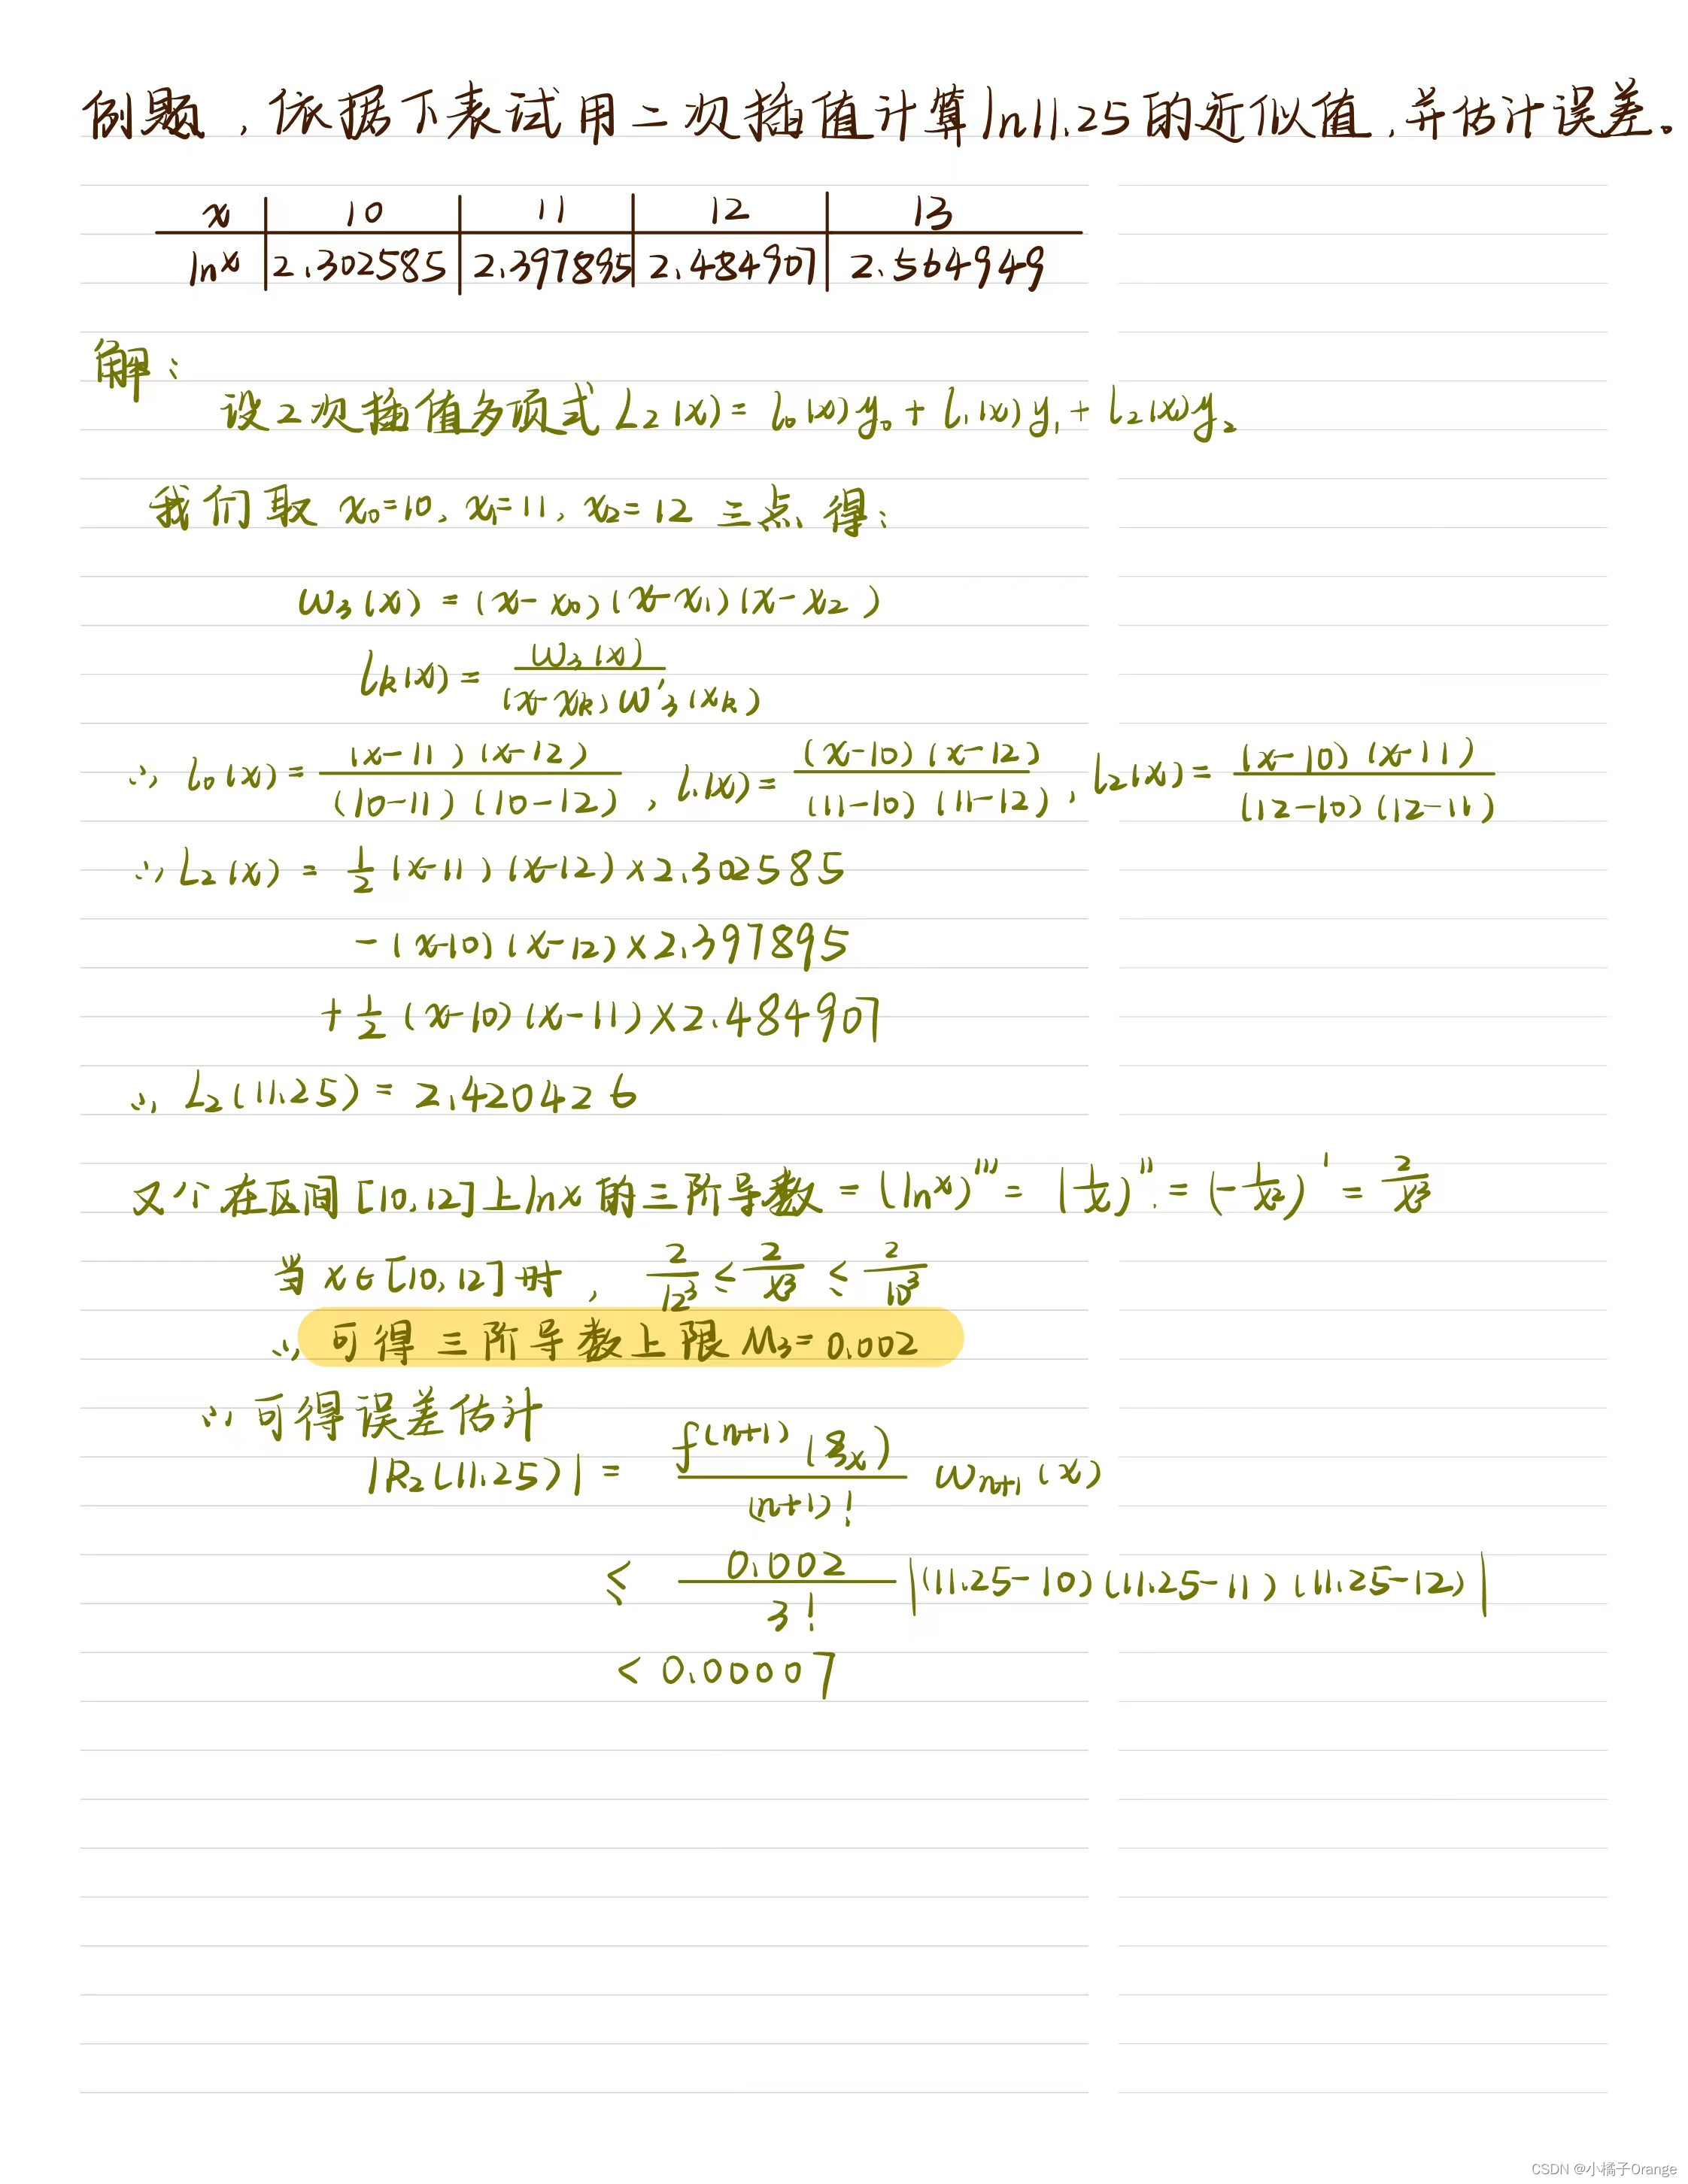 例题，依据下表试用二次插值计算ln11.25的近似值，并估计误差。
x | 10 | 11 | 12 | 13
lnx | 2.302585 | 2.397895 | 2.484907 | 2.564949
解：
设2次插值多项式 L₂(x) = l₀(x)y₀ + l₁(x)y₁ + l₂(x)y₂
我们取 x₀=10, x₁=11, x₂=12 三点得：
ω₃(x) = (x-x₀)(x-x₁)(x-x₂)
lₖ(x) = ω₃(x) / (x-xₖ)ω'₃(xₖ)
∴ l₀(x) = (x-11)(x-12) / (10-11)(10-12) , l₁(x) = (x-10)(x-12) / (11-10)(11-12) , l₂(x) = (x-10)(x-11) / (12-10)(12-11)
∴ L₂(x) = 1/2 (x-11)(x-12)×2.302585
-(x-10)(x-12)×2.397895
+ 1/2 (x-10)(x-11)×2.484907
∴ L₂(11.25) = 2.420426
又∵在区间[10,12]上lnx的三阶导数 = (lnx)''' = (1/x)'' = (-1/x²)' = 2/x³
当 x∈[10,12]时， 2/12³ ≤ 2/x³ ≤ 2/10³
∴ 可得三阶导数上限 M₃=0.002
∴ 可得误差估计
|R₂(11.25)| = f⁽ⁿ⁺¹⁾(ξₓ) / (n+1)! ωₙ₊₁(x)
≤ 0.002 / 3! |(11.25-10)(11.25-11)(11.25-12)|
< 0.00007
CSDN @小橘子Orange